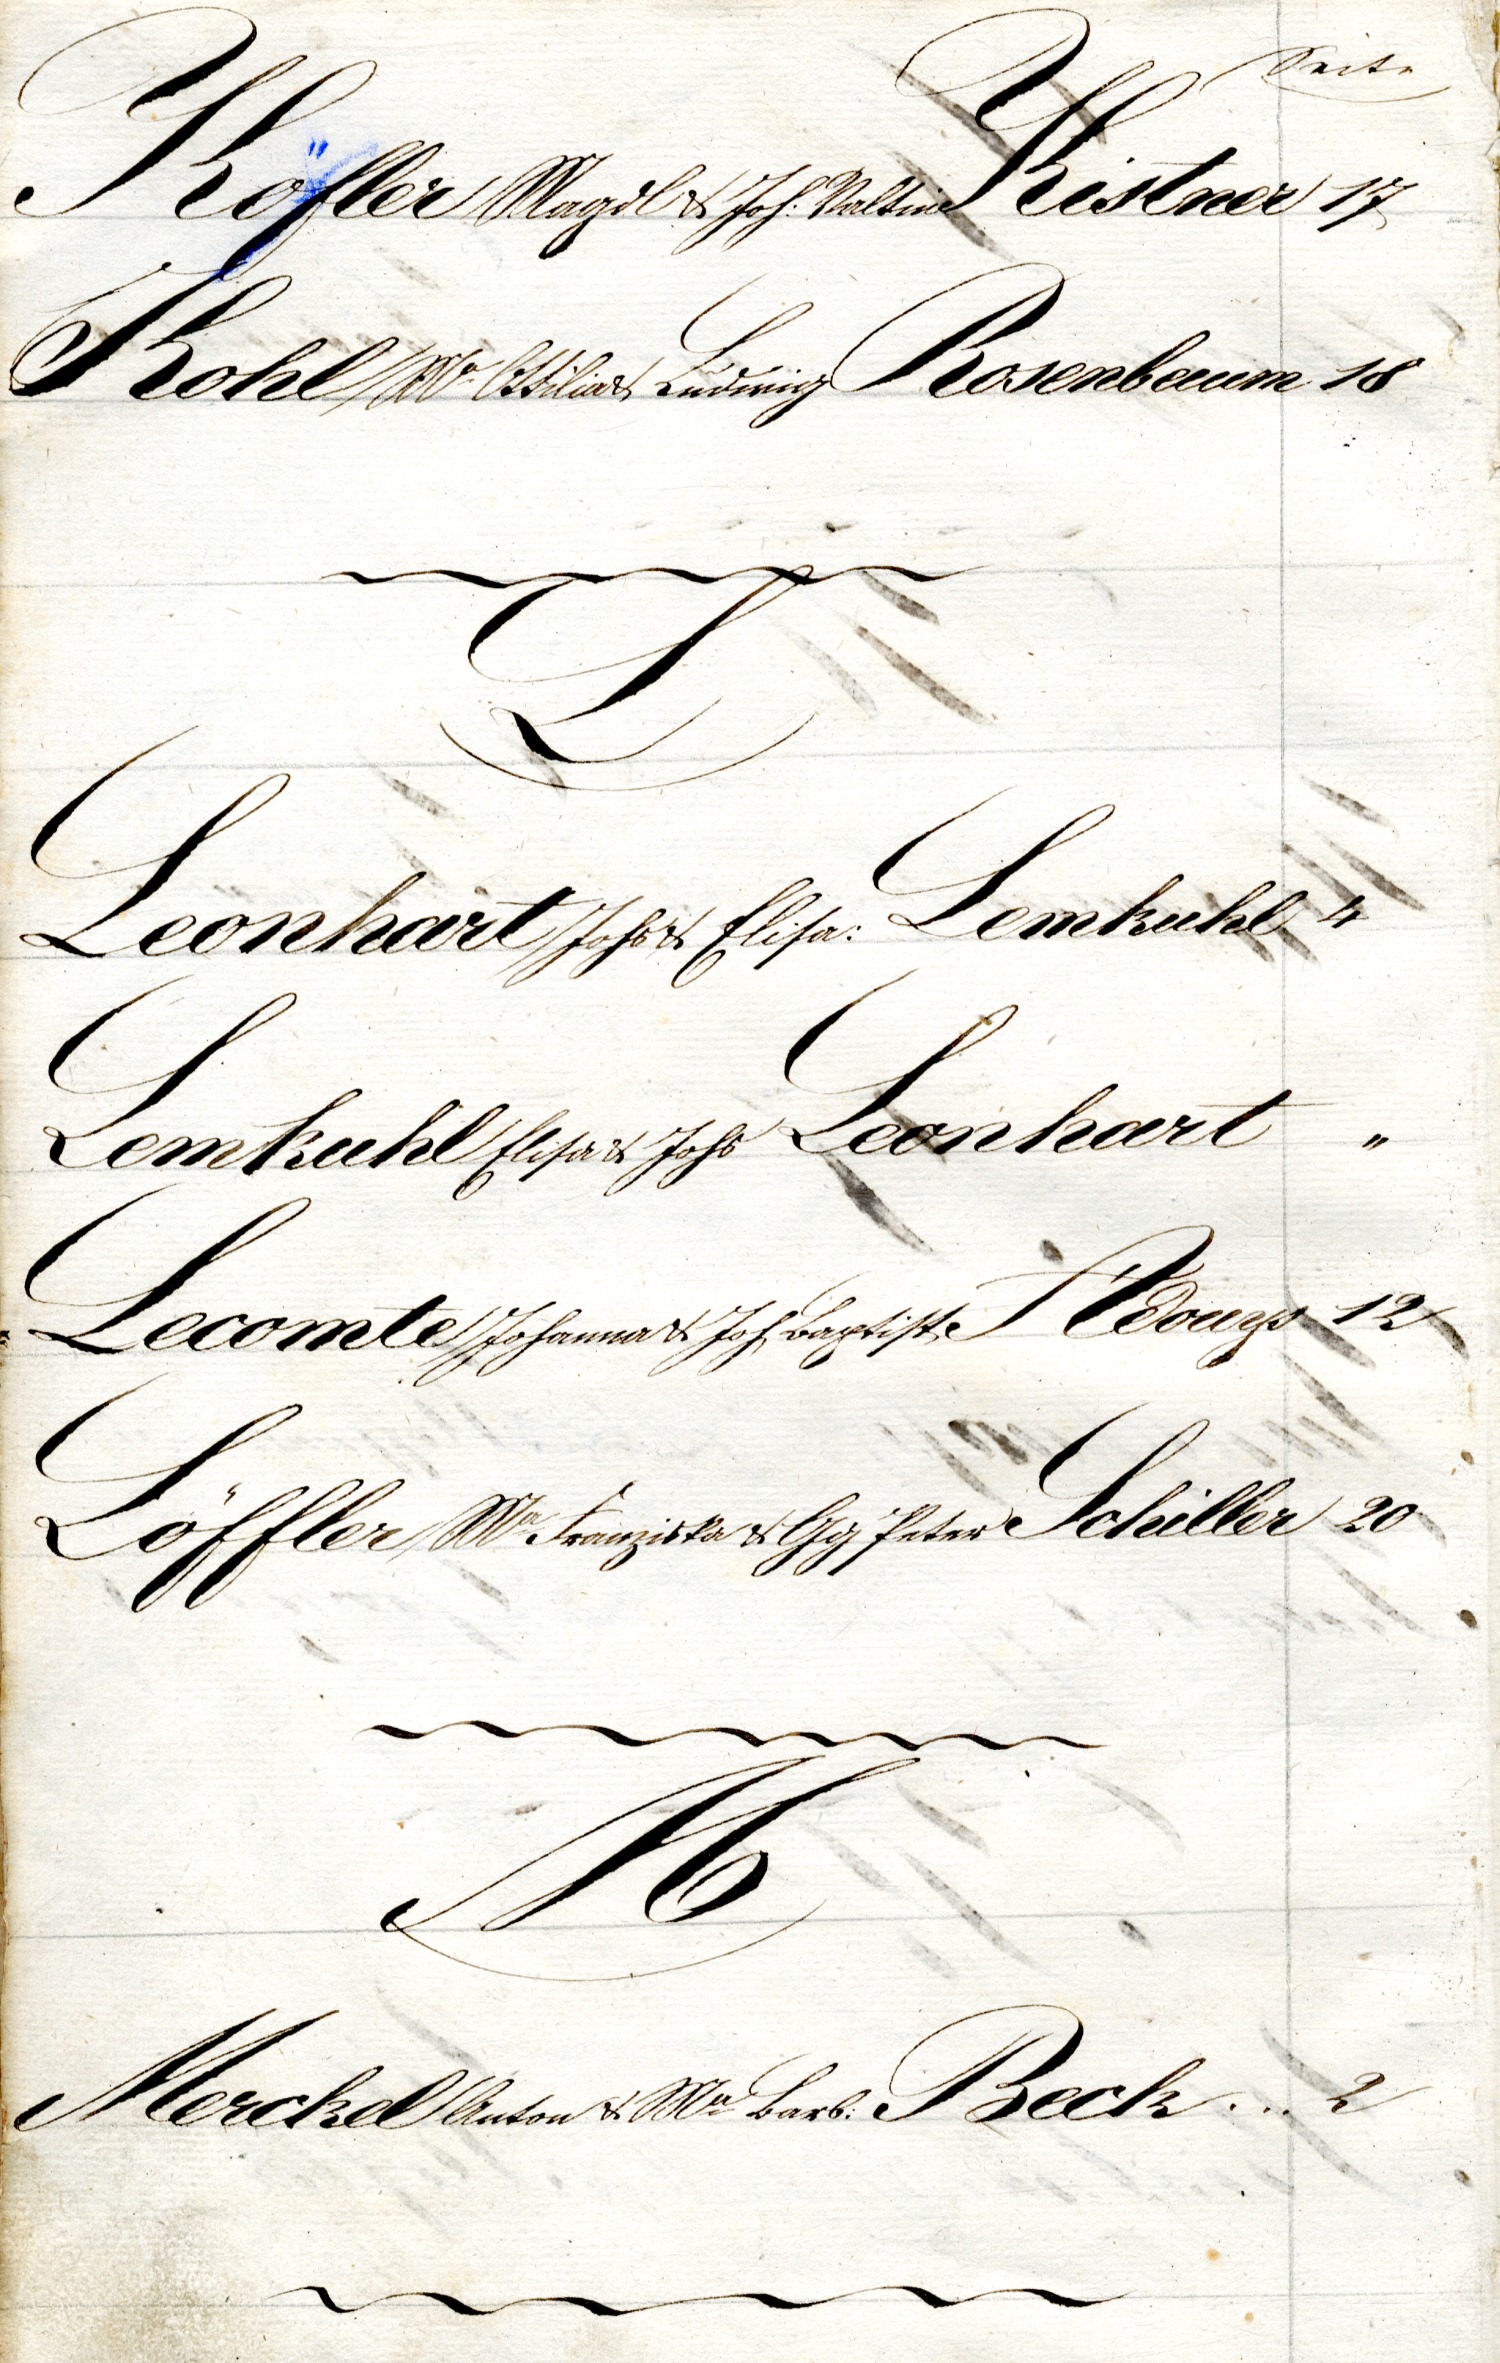 Seite
Köfler Magdl & Joh: Valtin Kistner 17
Kohl Ma Ottilia & Ludwig Rosenbaum 18
L
Leonhart Johs & Elisa: Lemkuhl 4
Lemkuhl Elisa & Johs Leonhart "
Lecomte Johanna & Joh Baptist 12
Löffler Ma Franziska & Gg Peter Schiller 20
M
Merckel Anton & Ma Barb: Beck ... 2